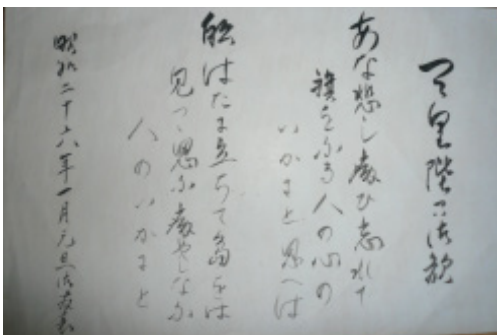 天皇陛下御歌
あな悲し病ひ忘れて
旗をふる人の心の
いかにと思へは
船はたに立ちて島をは
見つゝ思ふ病やしなふ
人のいかにと
昭和二十六年一月元旦